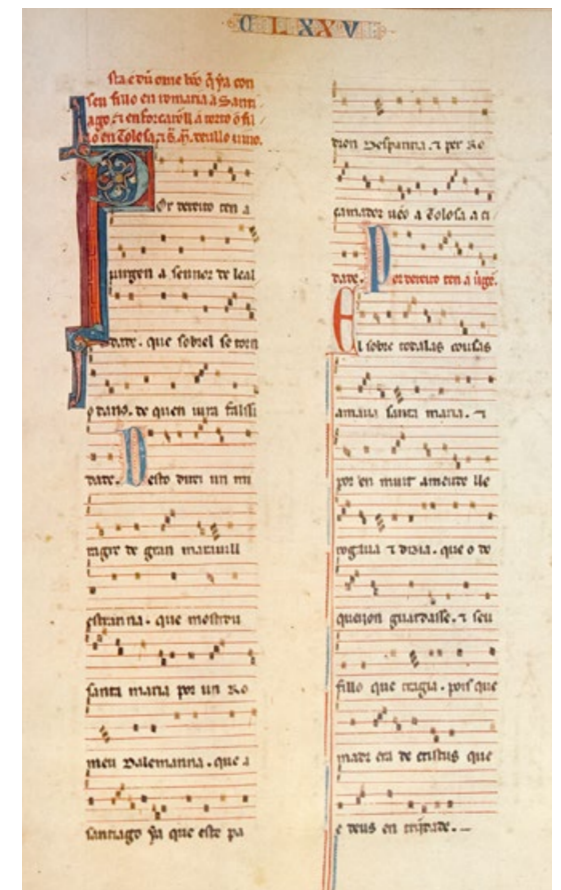 C L XXV
sta e dũ ome bõo q̃ ya con
seu fillo en romaria a Santi
ago,
en Tolosa,
Or dereito ten a
uirgen a sennor de leal
dade. que sobrel se torn
o dano. de quen iura falssi
dade. Desto dircei un mi
ragre de gran marauill
estranna. que mostrou
santa maria por un Ro
meu Dalemanna. que a
santiago ya que este pa
dron Despanna. ⁊ per Ro
camador uẽo a Tolosa a ci
dade. Por dereito ten a uigẽ.
El sobre todalas cousas
amaua santa maria. ⁊
por en muit ameude lle
rogaua ⁊ dizia. que o de
queijon guardasse. ⁊ seu
fillo que tragia. pois que
madr era de cristus que
e deus en trĩjdade.